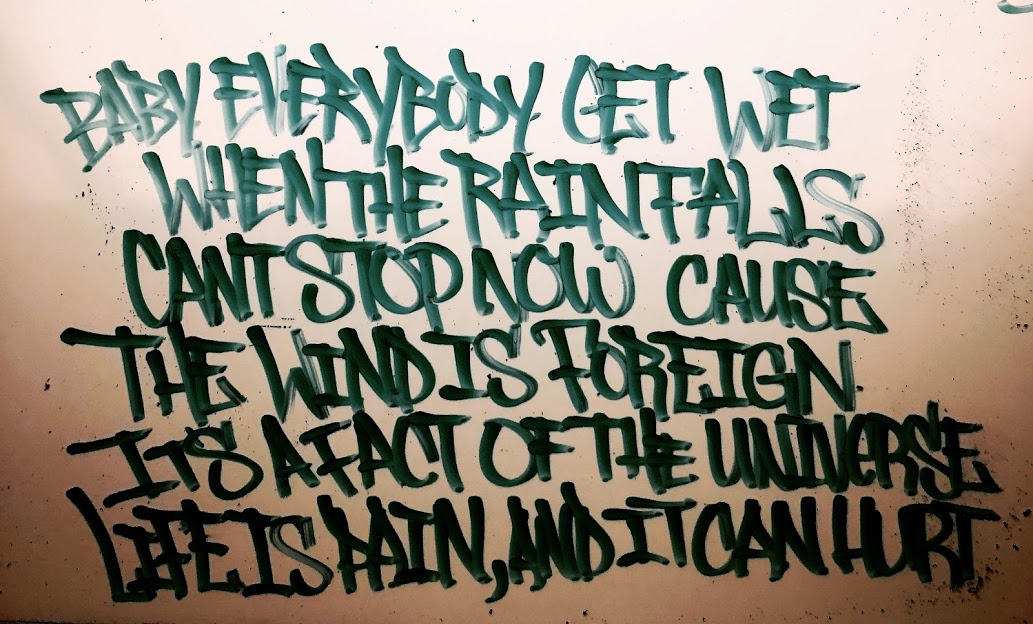 BABY EVERYBODY GET WET
WHEN THE RAIN FALLS
CANT STOP NOW CAUSE
THE WIND IS FOREIGN
IT'S A FACT OF THE UNIVERSE
LIFE IS PAIN, AND IT CAN HURT